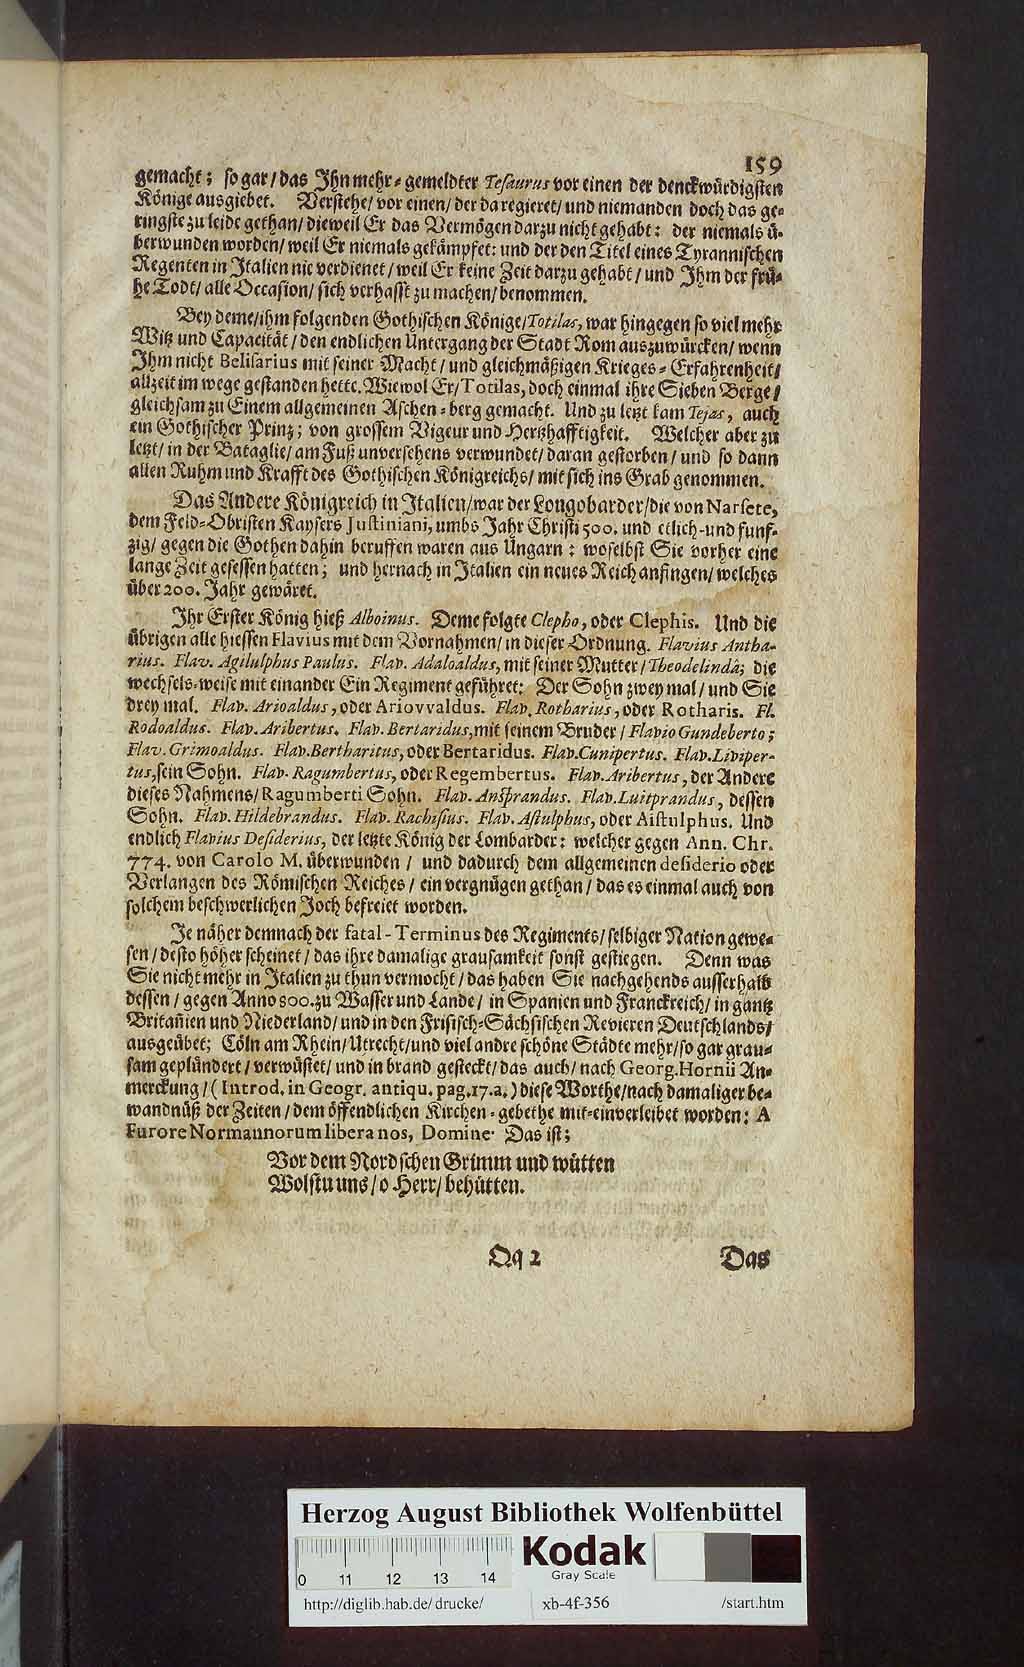 159
gemacht; so gar/das Ihn mehr-gemeldter Tesaurus vor einen der denckwürdigsten
Könige ausgiebet. Verstehe/vor einen/der da regieret/und niemanden doch das ge-
ringste zu leide gethan/dieweil Er das Vermögen darzu nicht gehabt: der niemals ü-
berwunden worden/weil Er niemals gekämpfet: und der den Titel eines Tyrannischen
Regenten in Italien nie verdienet/weil Er keine Zeit darzu gehabt/und Ihm der frü-
he Todt/alle Occasion/sich verhasst zu machen/benommen.
Bey deme/ihm folgenden Gothischen Könige/Totilas, war hingegen so viel mehr
Witz und Capacität/den endlichen Untergang der Stadt Rom auszuwürcken/wenn
Ihm nicht Belisarius mit seiner Macht/und gleichmäßigen Krieges-Erfahrenheit/
allzeit im wege gestanden hette. Wiewol Er/Totilas, doch einmal ihre Sieben Berge/
gleichsam zu Einem allgemeinen Aschen-berg gemacht. Und zu letzt kam Tejas, auch
ein Gothischer Prinz; von grossem Vigeur und Hertzhafftigkeit. Welcher aber zu
letzt/in der Bataglie/am Fuß unversehens verwundet/daran gestorben/und so dann
allen Ruhm und Krafft des Gothischen Königreichs/mit sich ins Grab genommen.
Das Andere Königreich in Italien/war der Longobarder/die von Narsete,
dem Feld-Obristen Kaysers Justiniani, umbs Jahr Christi 500. und etlich-und funf-
zig/gegen die Gothen dahin beruffen waren aus Ungarn: woselbst Sie vorher eine
lange Zeit gesessen hatten; und hernach in Italien ein neues Reich anfingen/welches
über 200. Jahr gewäret.
Ihr Erster König hieß Alboinus. Deme folgte Clepho, oder Clephis. Und die
übrigen alle hiessen Flavius mit dem Vornahmen/in dieser Ordnung. Flavius Antha-
rius. Flav. Agilulphus Paulus. Flav. Adaloaldus, mit seiner Mutter/Theodelindâ; die
wechsels-weise mit einander Ein Regiment geführet: Der Sohn zwey mal/und Sie
drey mal. Flav. Arioaldus, oder Ariovvaldus. Flav. Rotharius, oder Rotharis. Fl.
Rodoaldus. Flav. Aribertus. Flav. Bertaridus, mit seinem Bruder/Flavio Gundeberto;
Flav. Grimoaldus. Flav. Bertharitus, oder Bertaridus. Flav. Cunipertus. Flav. Liviper-
tus, sein Sohn. Flav. Ragumbertus, oder Regembertus. Flav. Aribertus, der Andere
dieses Nahmens/Ragumberti Sohn. Flav. Ansprandus. Flav. Luitprandus, dessen
Sohn. Flav. Hildebrandus. Flav. Rachisius. Flav. Astulphus, oder Aistulphus. Und
endlich Flavius Desiderius, der letzte König der Lombarder: welcher gegen Ann. Chr.
774. von Carolo M. überwunden/ und dadurch dem allgemeinen desiderio oder
Verlangen des Römischen Reiches/ein vergnügen gethan/das es einmal auch von
solchem beschwerlichen Joch befreiet worden.
Je näher demnach der fatal-Terminus des Regiments/selbiger Nation gewe-
sen/desto höher scheinet/das ihre damalige grausamkeit sonst gestiegen. Denn was
Sie nicht mehr in Italien zu thun vermocht/das haben Sie nachgehends ausserhalb
dessen/gegen Anno 800. zu Wasser und Lande/in Spanien und Franckreich/in gantz
Britañien und Niederland/und in den Frisisch-Sächsischen Revieren Deutschlands/
ausgeübet; Cöln am Rhein/Utrecht/und viel andre schöne Städte mehr/so gar grau-
sam geplündert/verwüstet/und in brand gesteckt/das auch/nach Georg. Hornii An-
merckung/(Introd. in Geogr. antiqu. pag. 17. a.) diese Worthe/nach damaliger be-
wandnüß der Zeiten/dem öffendlichen Kirchen-gebethe mit-einverleibet worden: A
Furore Normannorum libera nos, Domine. Das ist;
Vor dem Nordschen Grimm und wütten
Wolstu uns/o Herr/behütten.
Qq 2 Das
Herzog August Bibliothek Wolfenbüttel
0 11 12 13 14
Kodak
Gray Scale
http://diglib.hab.de/drucke/ xb-4f-356 /start.htm